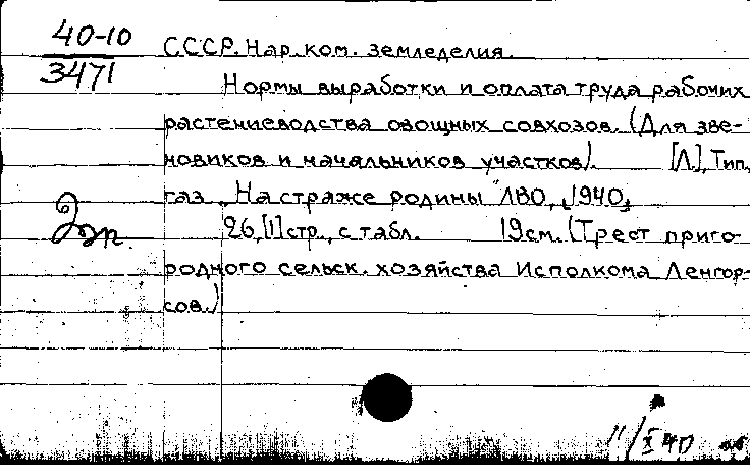 40-10
3471
СССР. Нар. ком. земледелия.
Нормы выработки и оплата труда рабочих
растениеводства овощных совхозов. (Для зве-
новиков и начальников участков). [Л.], Тип.
газ. "На страже родины" ЛВО, 1940,
26, [1] стр., с табл. 19 см. (Трест приго-
родного сельск. хозяйства Исполкома Ленгор-
сов.)
11/X 40